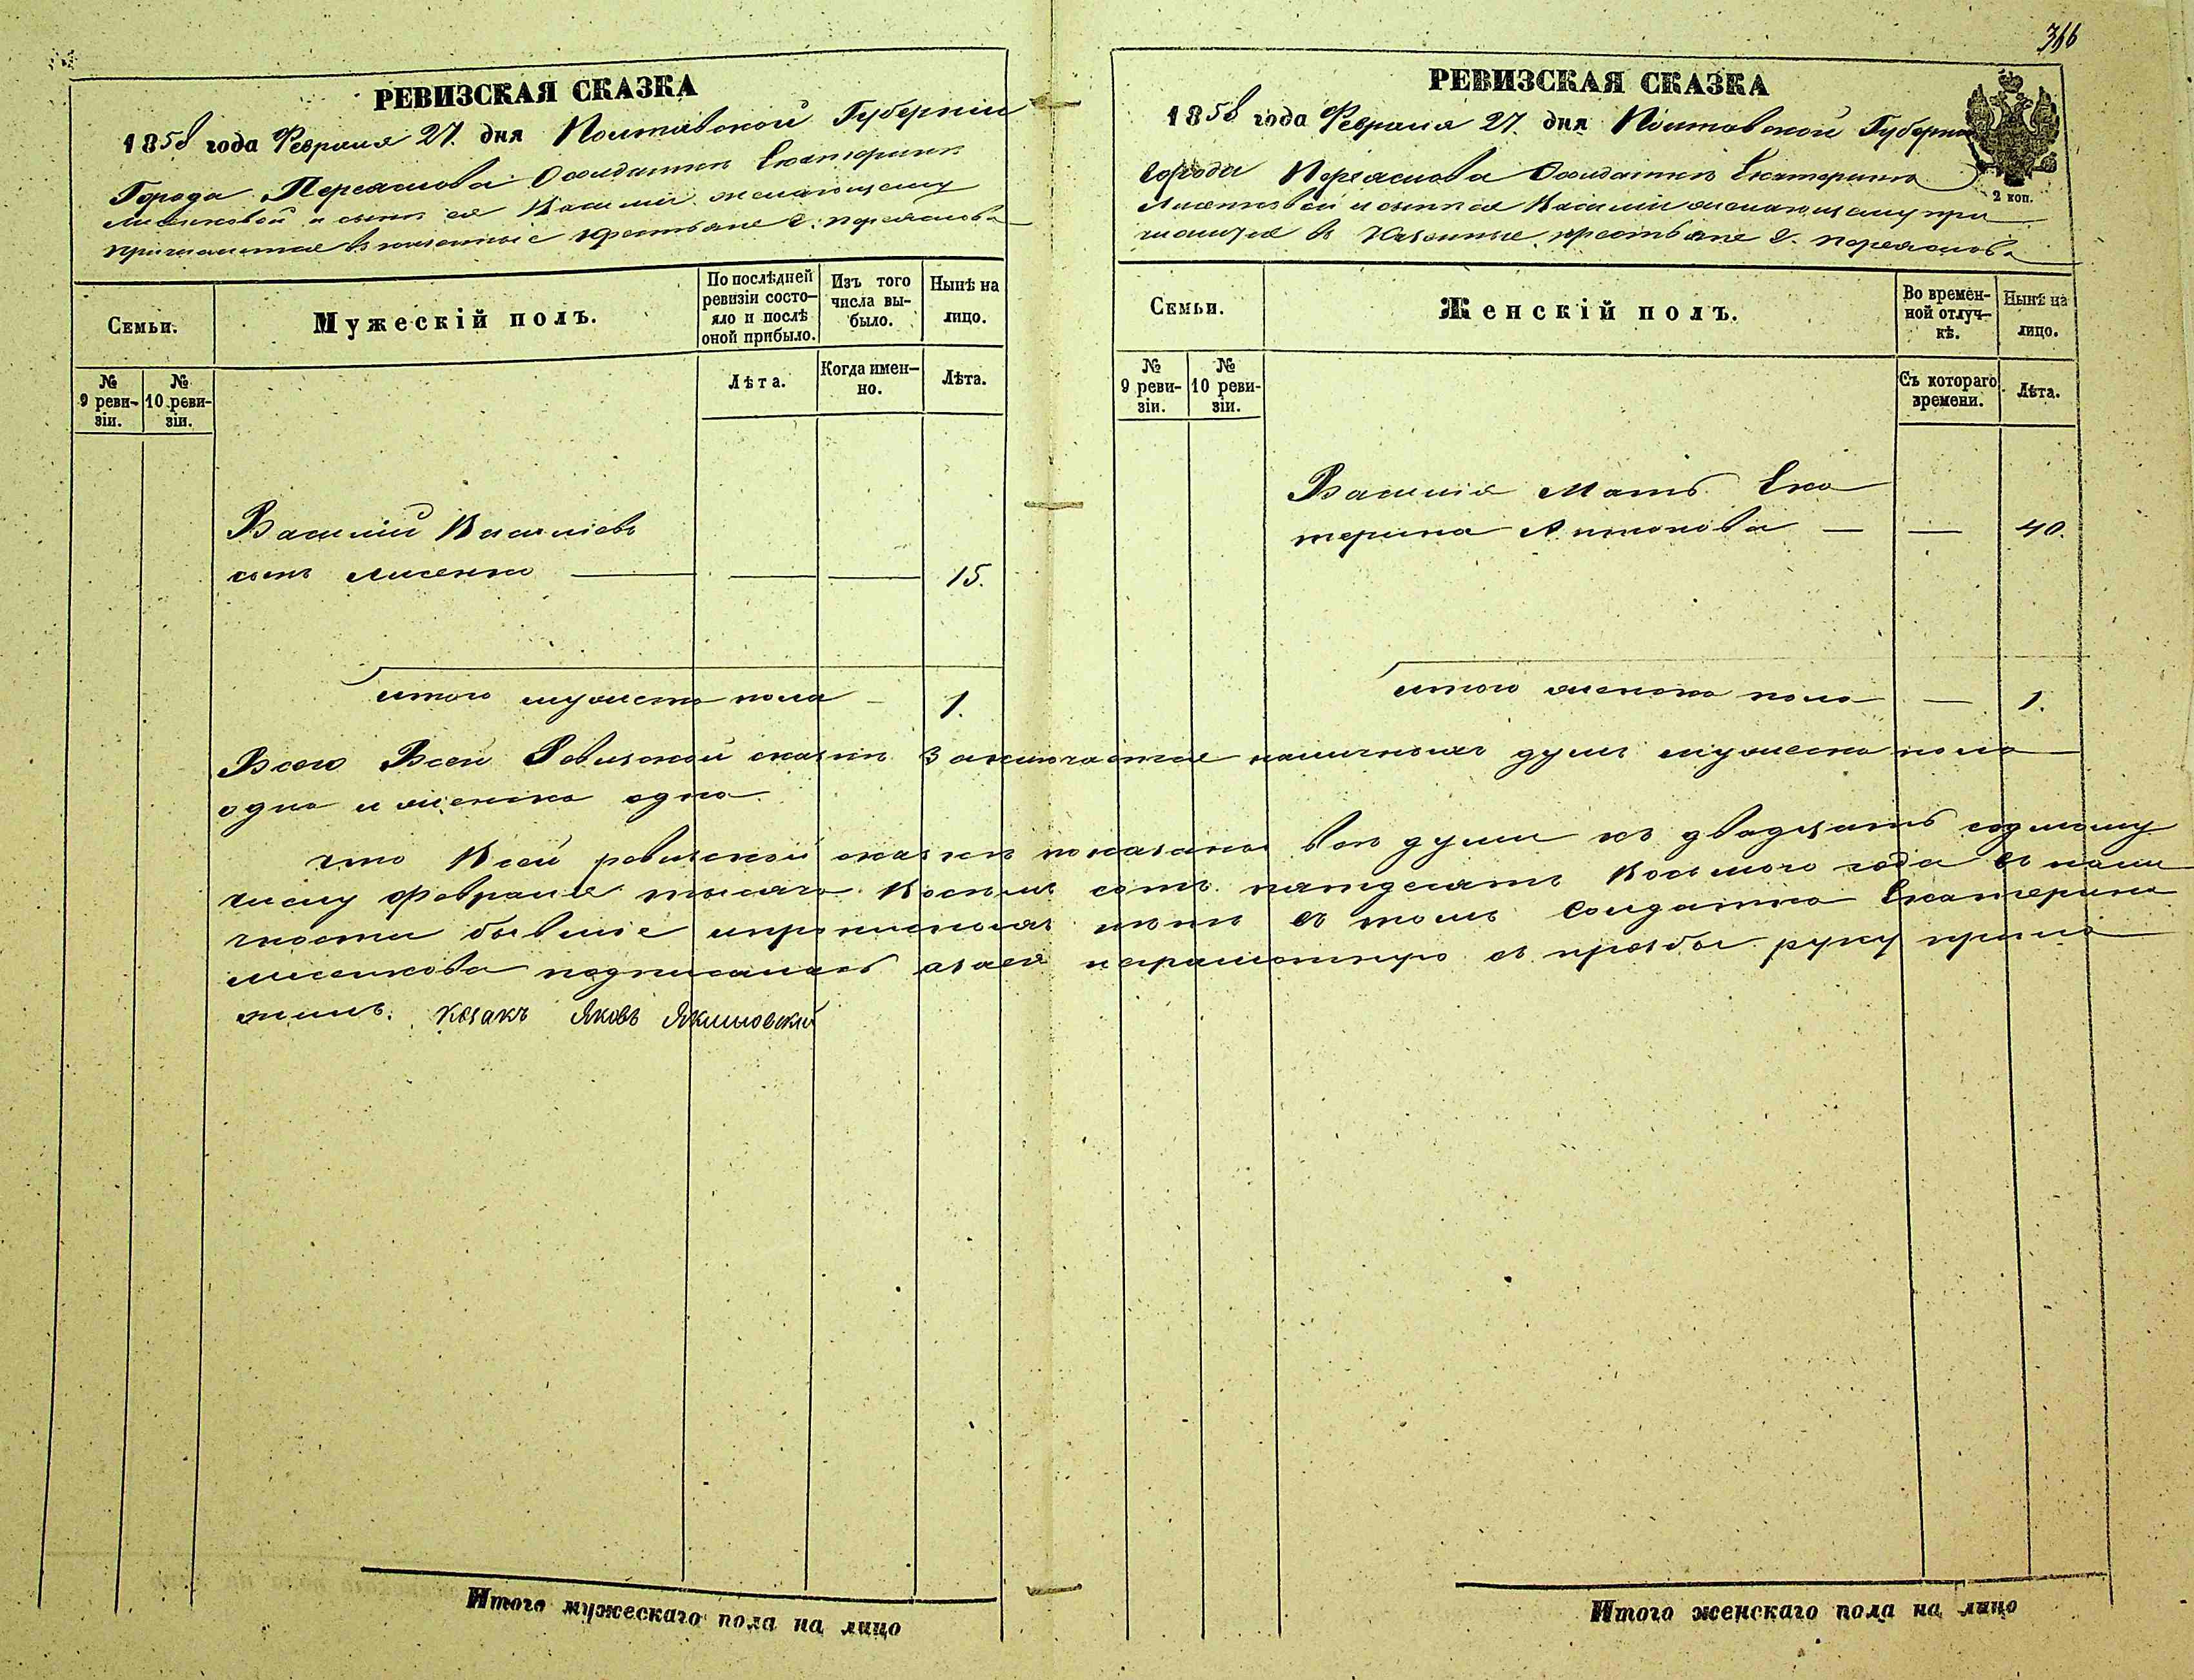 366
РЕВИЗСКАЯ СКАЗКА
1858 года Февраля 27. дня Полтавской Губернии
Города Переяслова Солдатки Екатерини
Лисенковой и сына ея Василия желающему
в казенные крестьяне г. Переяслова
Семьи.
Мужескій полъ.
По послѣдней ревизіи состояло и послѣ оной прибыло.
Изъ того числа выбыло.
Нынѣ на лицо.
№ 9 ревизіи.
№ 10 ревизіи.
Лѣта.
Когда именно.
Лѣта.
Василій Василіевъ
сынъ Лисенко — — — 15.
итого мужеска пола — 1.
РЕВИЗСКАЯ СКАЗКА
1858 года Февраля 27. дня Полтавской Губерніи
Города Переяслова Солдатки Екатерини
Лисенковой и сына ея Василия желающему при
в Казенные крестьяне г. Переяслова
2 коп.
Семьи.
Женскій полъ.
Во временной отлучкѣ.
Нынѣ на лицо.
№ 9 ревизіи.
№ 10 ревизіи.
Съ котораго времени.
Лѣта.
Василія Мать Ека
терина Антонова — — 40.
итого женска пола — 1.
Всего Всей Ревизской сказки Заключается наличныхъ душъ мужеска пола
одна и женска одна.
что Всей ревизской сказки показаны все души къ двадцать седмому
числу Февраля тысяча Восемь сотъ пятдесятъ Восьмого года в нали
чности бывшіе и прописныхъ нетъ в томъ Солдатка Екатерина
Лисенкова подписалась а за ея неграмотную съ прозбы руку прило
жилъ. Козакъ Яковъ Якимовскій
Итого мужескаго пола на лицо
Итого женскаго пола на лицо